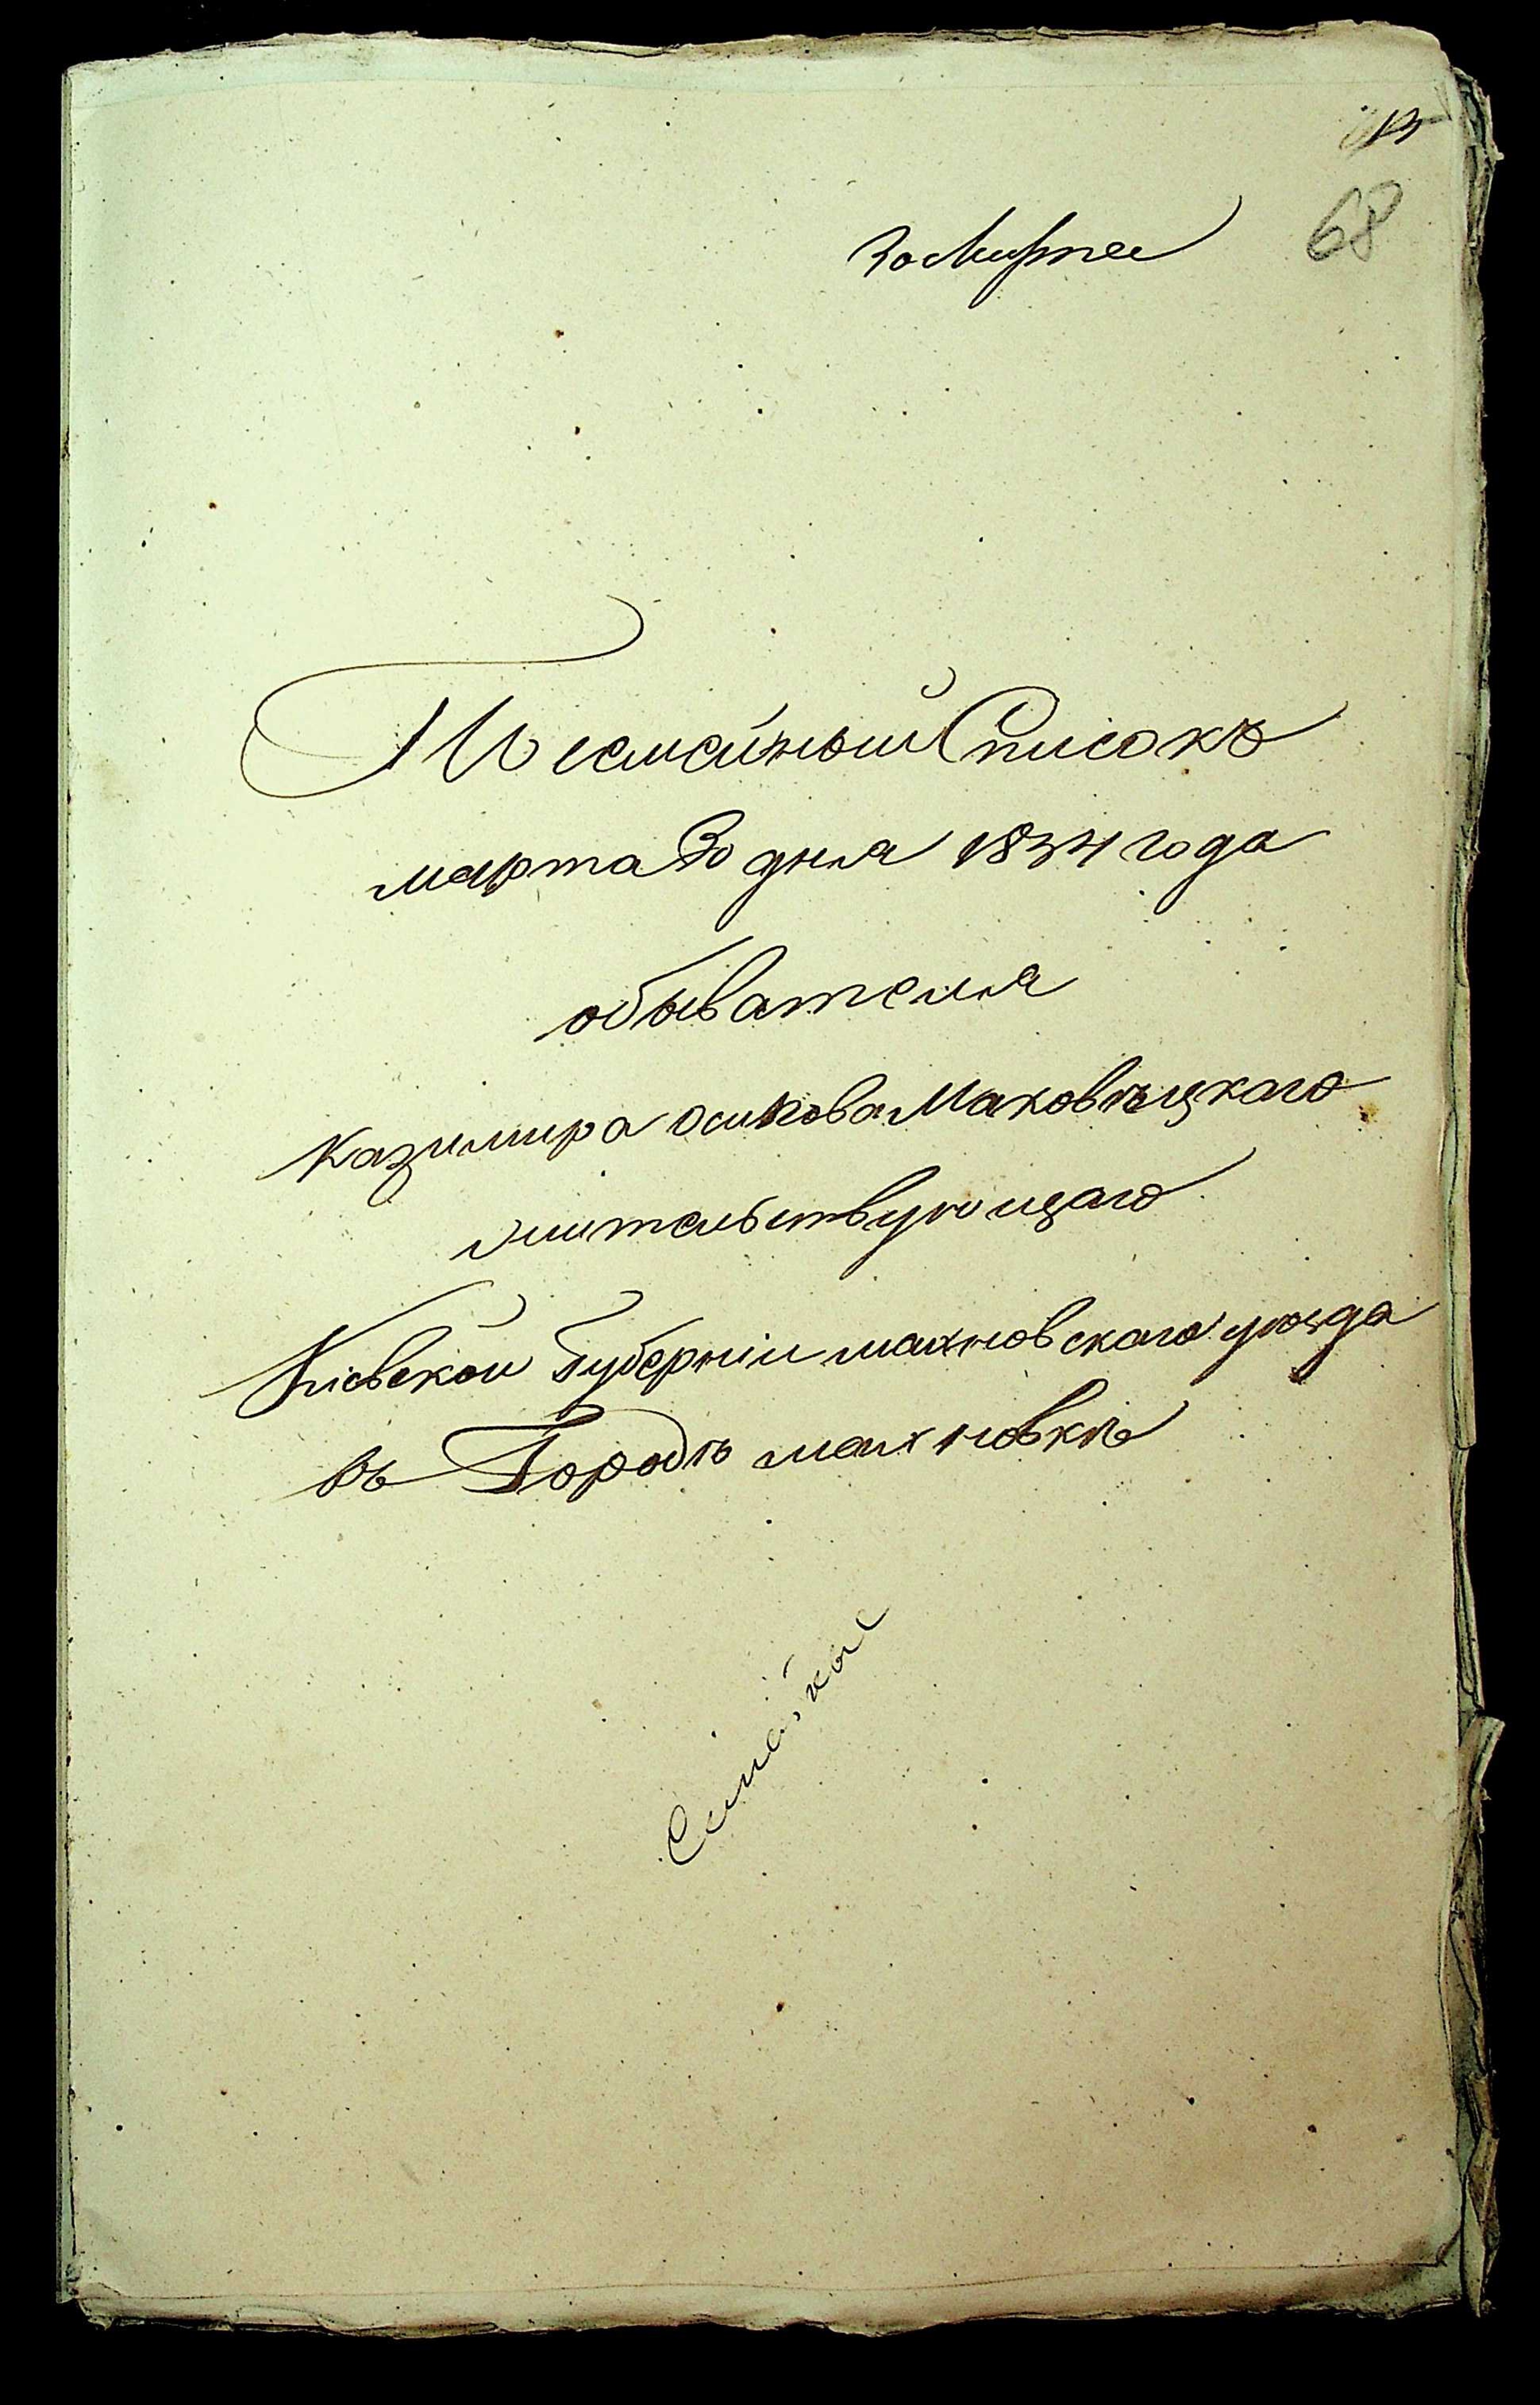 68
30 Марта
Посемейный Списокъ
марта 30 дня 1834 года
обывателя
Казимира осипова Маковѣцкаго
жительствующаго
Кіевской Губерніи махновскаго уѣзда
въ Городѣ махновкѣ